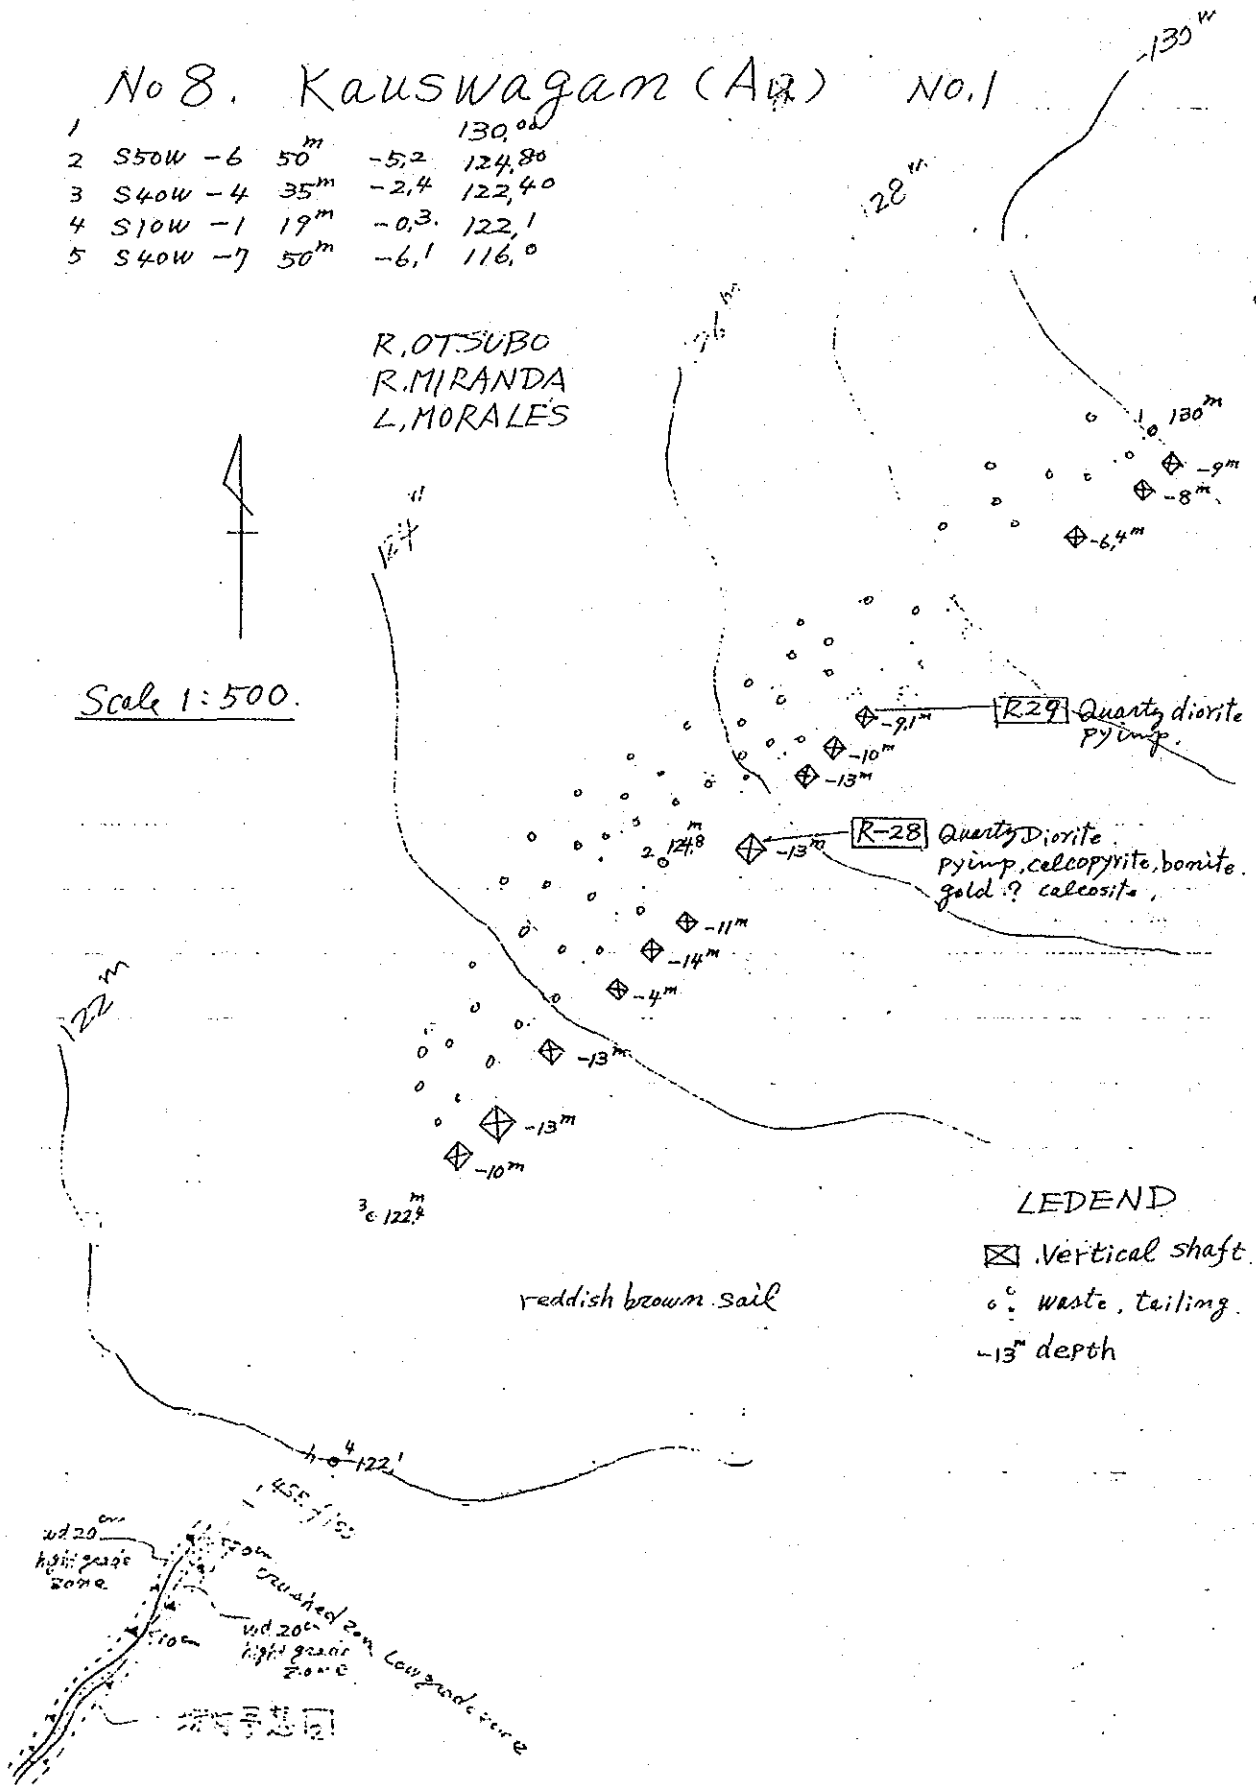 No 8. Kauswagan (Au) No.1
1 130,00
2 S50W -6 50m -5,2 124,80
3 S40W -4 35m -2,4 122,40
4 S10W -1 19m -0,3. 122,1
5 S40W -7 50m -6,1 116,0
R.OTSUBO
R.MIRANDA
L,MORALES
Scale 1:500.
130m
128m
126m
124m
122m
1 130m
-9m
-8m
-6,4m
-9,1m
R29 Quartz diorite
pyimp.
-10m
-13m
2 124,8m
-13m
R-28 Quartz Diorite.
pyimp, calcopyrite, bonite.
gold ? calcosite,
-11m
-14m
-4m
-13m
-13m
-10m
3 122,4m
reddish brown sail
LEDEND
Vertical shaft.
waste, tailing.
-13m depth
4 122,1
wd 20cm
hight grade
zone
crushed zone Low grade zone
wd 20cm
hight grade
zone